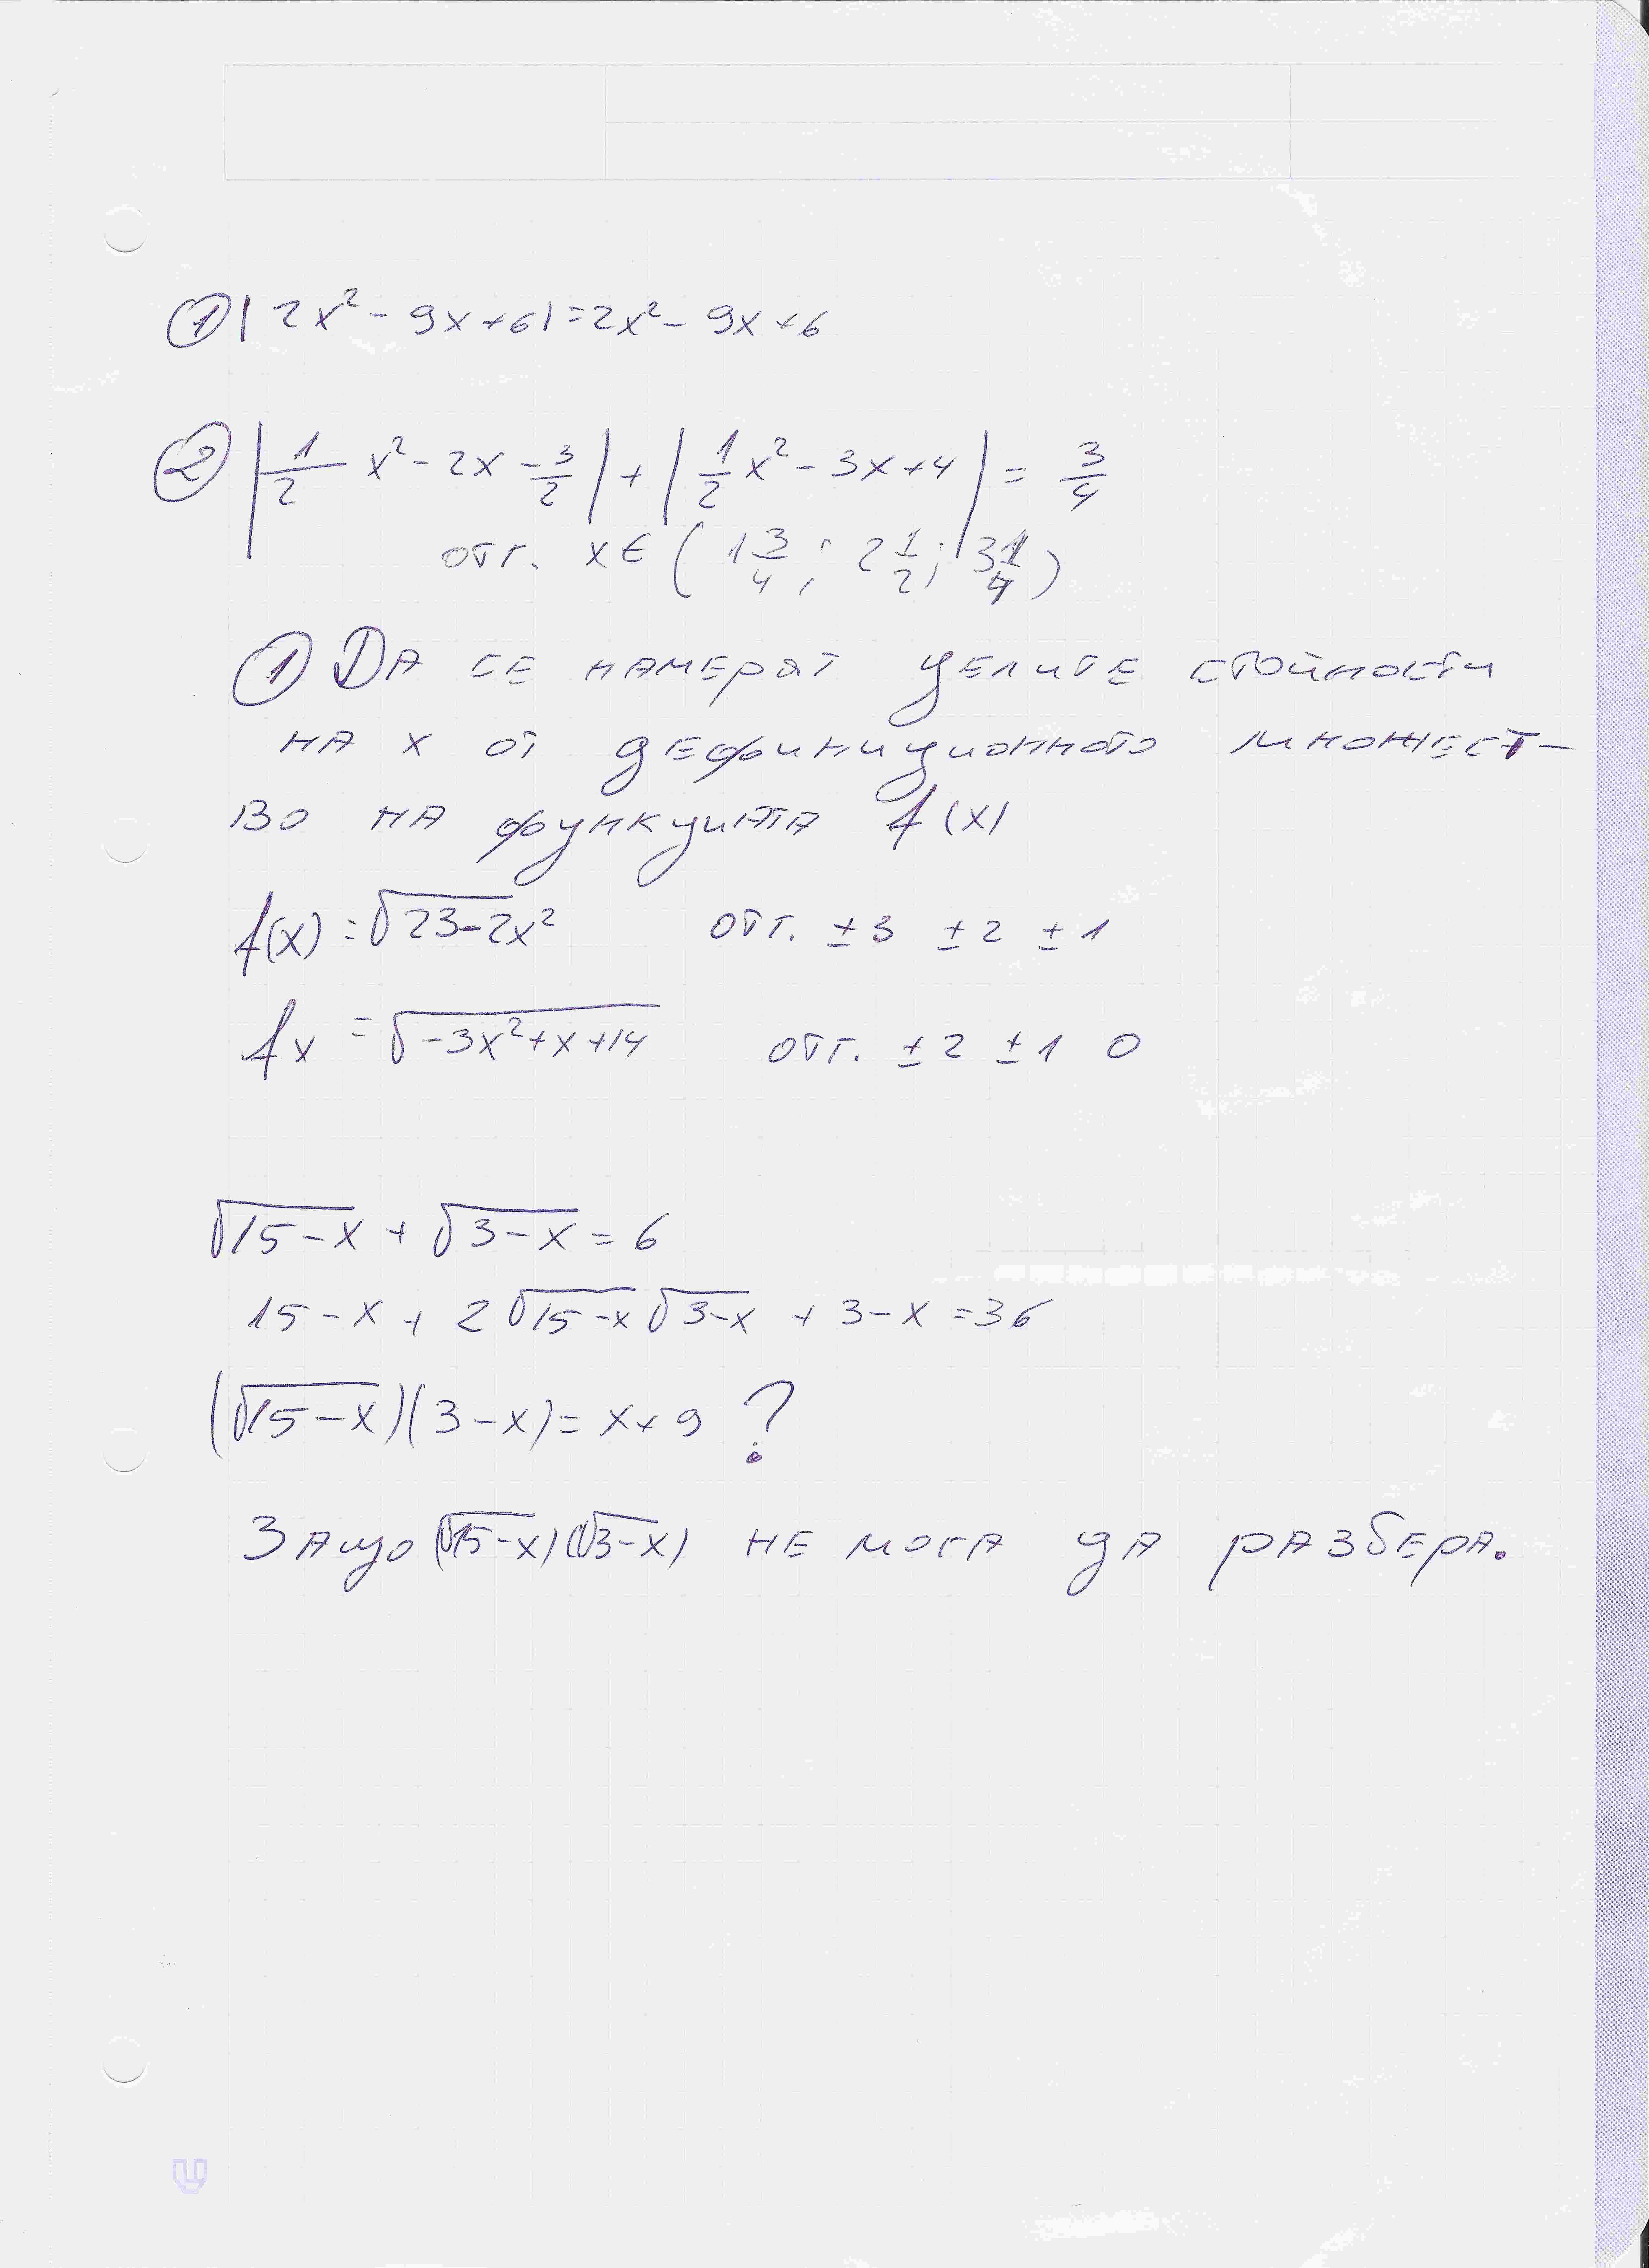 ① |2x² - 9x + 6| = 2x² - 9x + 6
② |1/2 x² - 2x - 3/2| + |1/2 x² - 3x + 4| = 3/4
отг. x ∈ (1 3/4 ; 2 1/2 ; 3 1/4)
① Да се намерят целите стойности
на x от дефиниционното множест-
во на функцията f(x)
f(x) = √23-2x² отг. ±3 ±2 ±1
fx = √-3x²+x+14 отг. ±2 ±1 0
√15-x + √3-x = 6
15-x + 2√15-x √3-x + 3-x = 36
(√15-x)(3-x) = x+9 ?
Защо (√15-x)(√3-x) не мога да разбера.